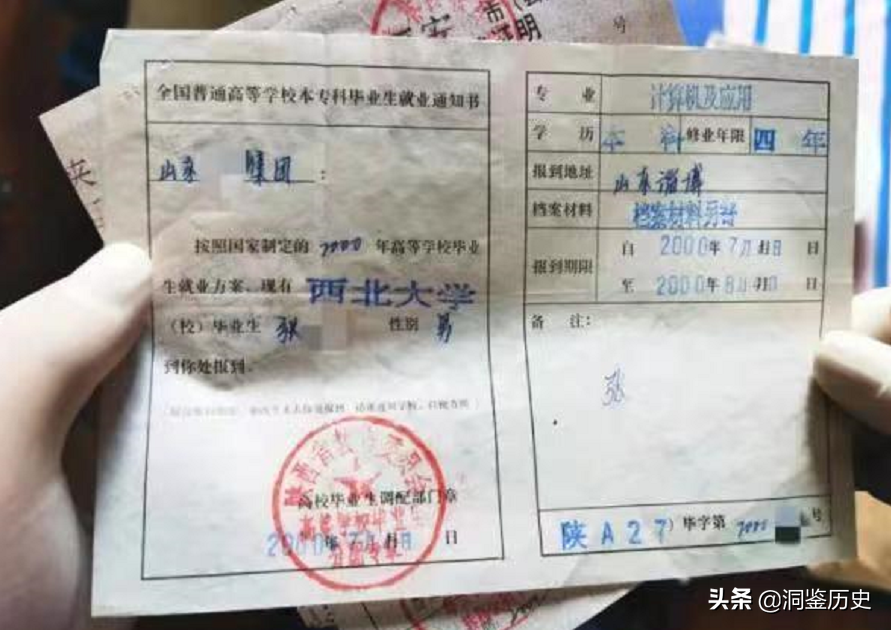 市
证明
号
全国普通高等学校本专科毕业生就业通知书
山东 集团 :
按照国家制定的 2000 年高等学校毕业
生就业方案、现有 西北大学
(校)毕业生 张 性别 男
到你处报到。
高校毕业生调配部门章
2000年7月 日
专 业 计算机及应用
学 历 本 科 修业年限 四 年
报到地址 山东淄博
档案材料 档案材料另寄
报到期限
自 2000年7月 日
至 2000年8月 日
备 注:
张
陕A27)毕字第 2000 号
头条 @洞鉴历史